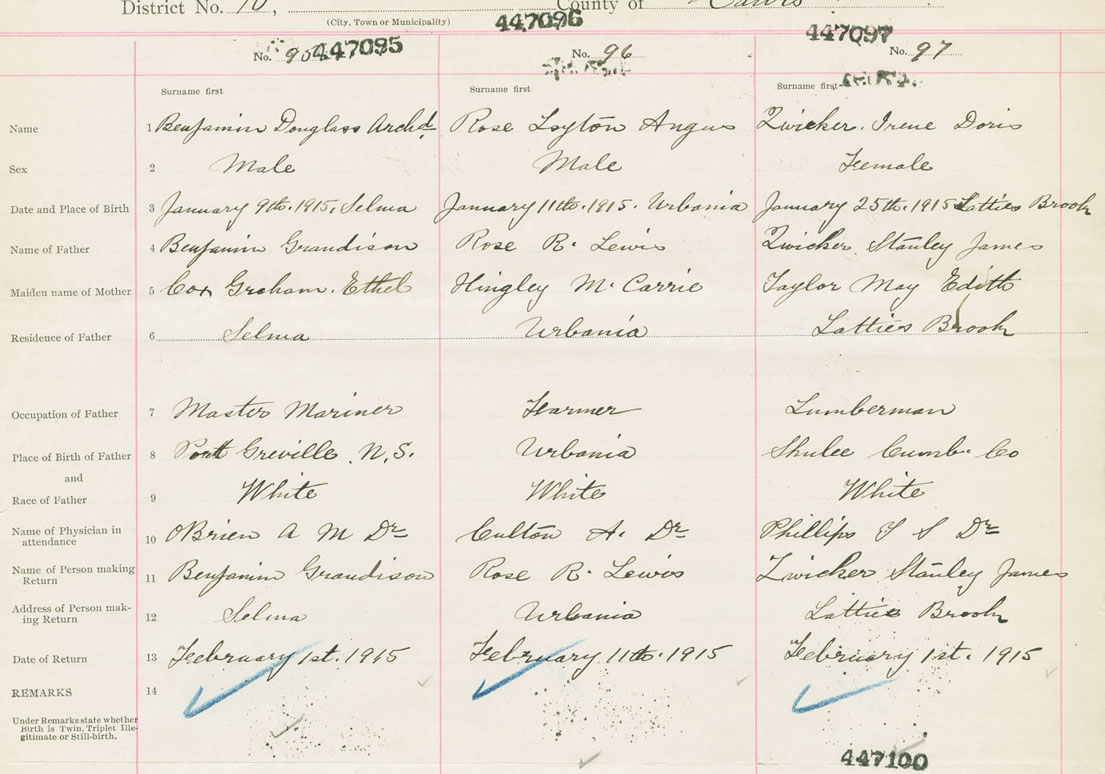 District No. 10, County of Hants
(City, Town or Municipality)
447095 447096 447097
No. 95 No. 96 No. 97
Surname first Surname first Surname first
Name 1 Benjamin Douglass Archd. Rose Loyton Angus Zwicker. Irene Doris
Sex 2 Male Male Female
Date and Place of Birth 3 January 9th. 1915, Selma January 11th. 1915. Urbania January 25th. 1915 Latties Brook
Name of Father 4 Benjamin Grandison Rose R. Lewis Zwicker Stanley James
Maiden name of Mother 5 Cox Graham. Ethel Hingley Mc Carrie Taylor May Edith
Residence of Father 6 Selma Urbania Latties Brook
Occupation of Father 7 Master Mariner Farmer Lumberman
Place of Birth of Father 8 Port Greville N.S. Urbania Shulee Cumb. Co
and
Race of Father 9 White White White
Name of Physician in
attendance 10 OBrien A M Dr Culton A. Dr Phillips T S Dr
Name of Person making
Return 11 Benjamin Grandison Rose R. Lewis Zwicker Stanley James
Address of Person mak-
ing Return 12 Selma Urbania Latties Brook
Date of Return 13 February 1st. 1915 February 11th. 1915 February 1st. 1915
REMARKS 14
Under Remarks state whether
Birth is Twin. Triplet Ille-
gitimate or Still-birth.
447100